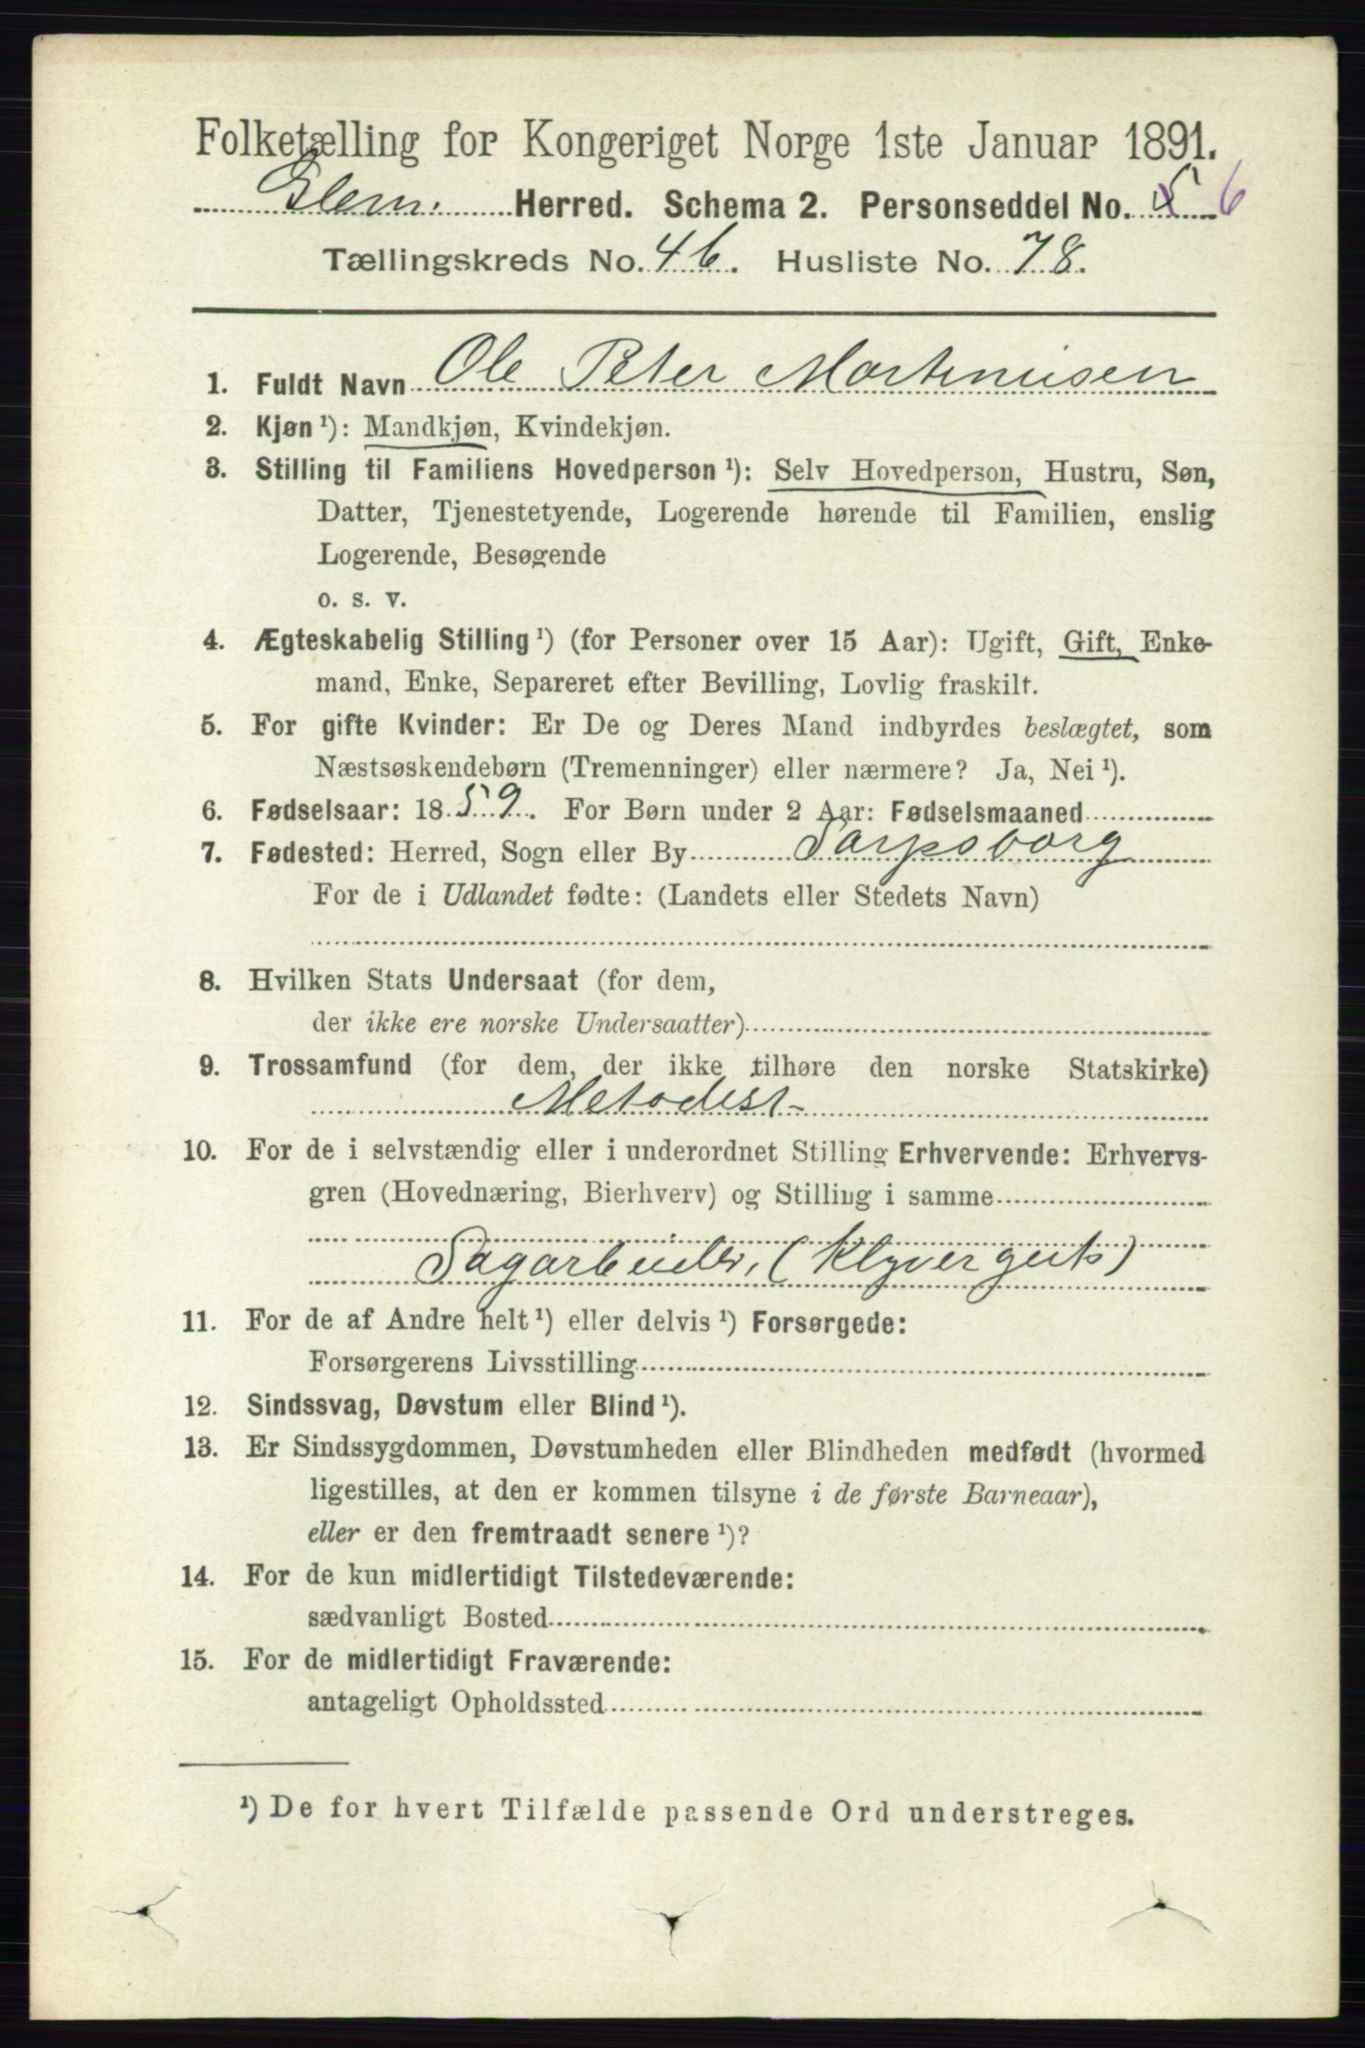 Folketælling for Kongeriget Norge 1ste Januar 1891.
Glem. Herred. Schema 2. Personseddel No. 5 6
Tællingskreds No. 46. Husliste No. 78.
1. Fuldt Navn Ole Peter Martinusen
2. Kjøn ¹): Mandkjøn, Kvindekjøn.
3. Stilling til Familiens Hovedperson ¹): Selv Hovedperson, Hustru, Søn,
Datter, Tjenestetyende, Logerende hørende til Familien, enslig
Logerende, Besøgende
o. s. v.
4. Ægteskabelig Stilling ¹) (for Personer over 15 Aar): Ugift, Gift, Enke-
mand, Enke, Separeret efter Bevilling, Lovlig fraskilt.
5. For gifte Kvinder: Er De og Deres Mand indbyrdes beslægtet, som
Næstsøskendebørn (Tremenninger) eller nærmere? Ja, Nei ¹).
6. Fødselsaar: 1859. For Børn under 2 Aar: Fødselsmaaned
7. Fødested: Herred, Sogn eller By Sarpsborg
For de i Udlandet fødte: (Landets eller Stedets Navn)
8. Hvilken Stats Undersaat (for dem,
der ikke ere norske Undersaatter)
9. Trossamfund (for dem, der ikke tilhøre den norske Statskirke)
Metodist
10. For de i selvstændig eller i underordnet Stilling Erhvervende: Erhvervs-
gren (Hovednæring, Bierhverv) og Stilling i samme
Sagarbeider, (Klyvergut)
11. For de af Andre helt ¹) eller delvis ¹) Forsørgede:
Forsørgerens Livsstilling
12. Sindssvag, Døvstum eller Blind ¹).
13. Er Sindssygdommen, Døvstumheden eller Blindheden medfødt (hvormed
ligestilles, at den er kommen tilsyne i de første Barneaar),
eller er den fremtraadt senere ¹)?
14. For de kun midlertidigt Tilstedeværende:
sædvanligt Bosted
15. For de midlertidigt Fraværende:
antageligt Opholdssted
¹) De for hvert Tilfælde passende Ord understreges.